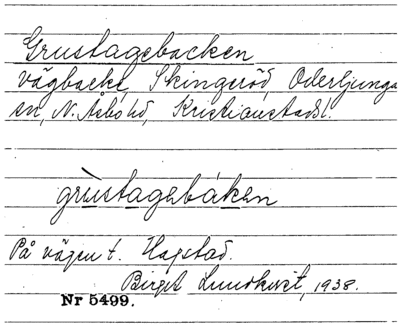 Grustagebacken
vägbacke, Skingeröd, Oderljunga
sn, N. Åsbo hd, Kristianstads l.
grùstagebáken
På vägen t. Hagstad.
Birgit Lundkvist, 1938.
Nr 5499.